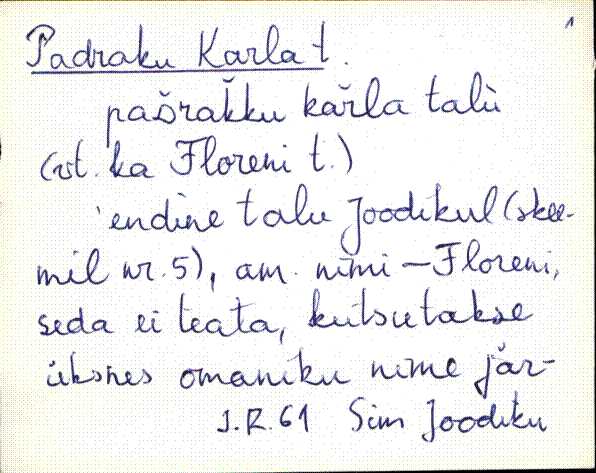 1
Padraku Karla t.
pašrak̆ku kařla talù
(vt. ka Floreni t.)
endine talu Joodikul (skee-
mil nr. 5), am. nimi — Floreni,
seda ei teata, kutsutakse
üksnes omaniku nime jär-
J.R. 61 Sim Joodiku